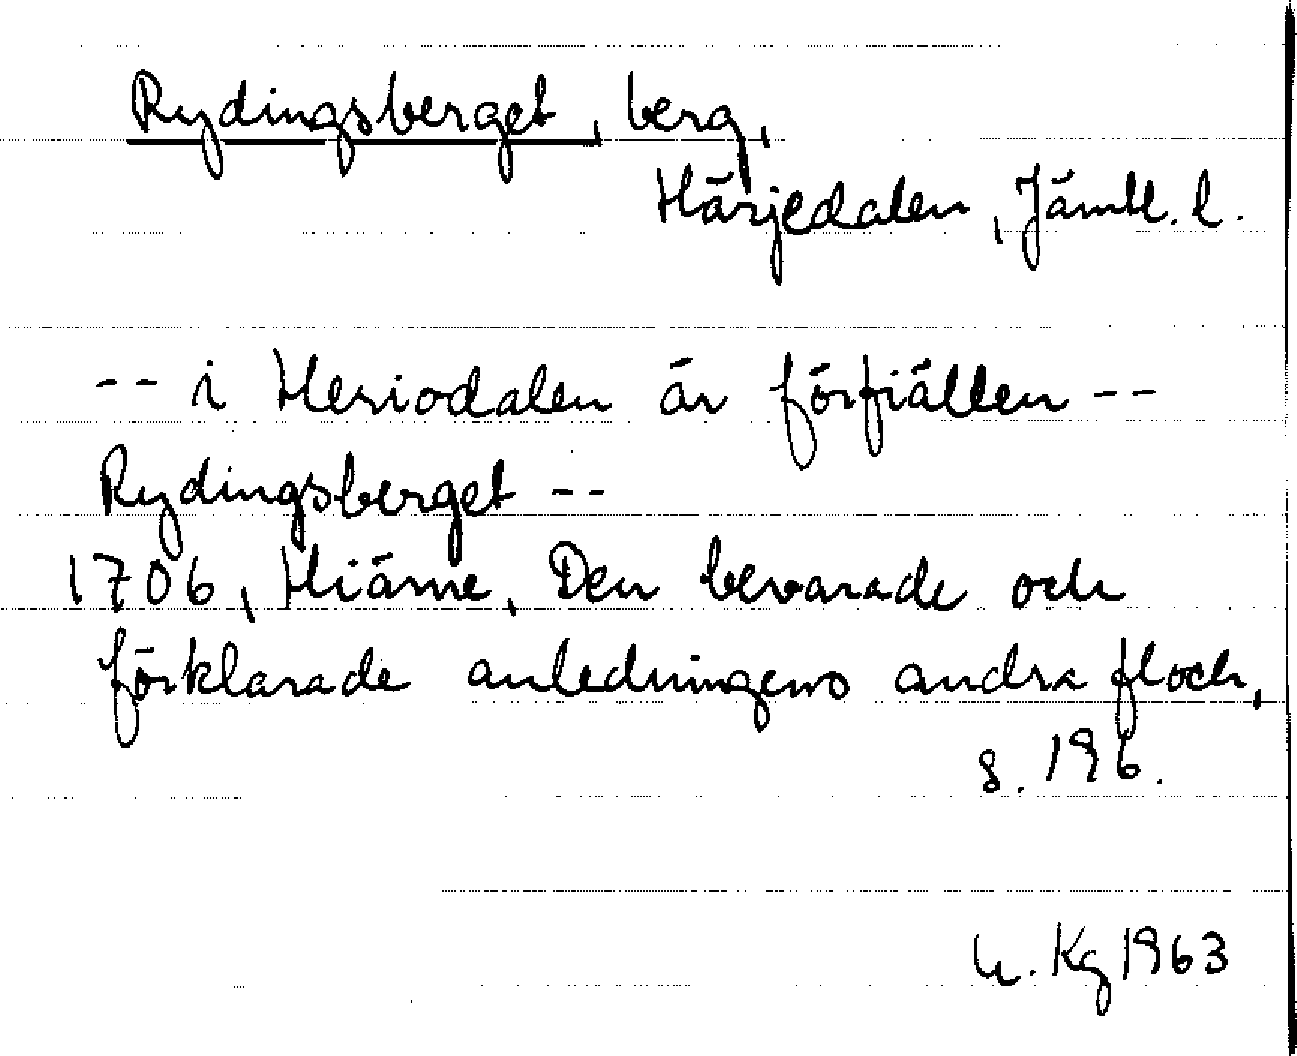 Rydingsberget, berg,
Härjedalen, Jämtl. l.
-- i Heriodalen är förfiällen --
Rydingsberget --
1706, Hiärne, Den bevarade och
förklarade anledningens andra floch,
s. 196.
U. Kg 1963